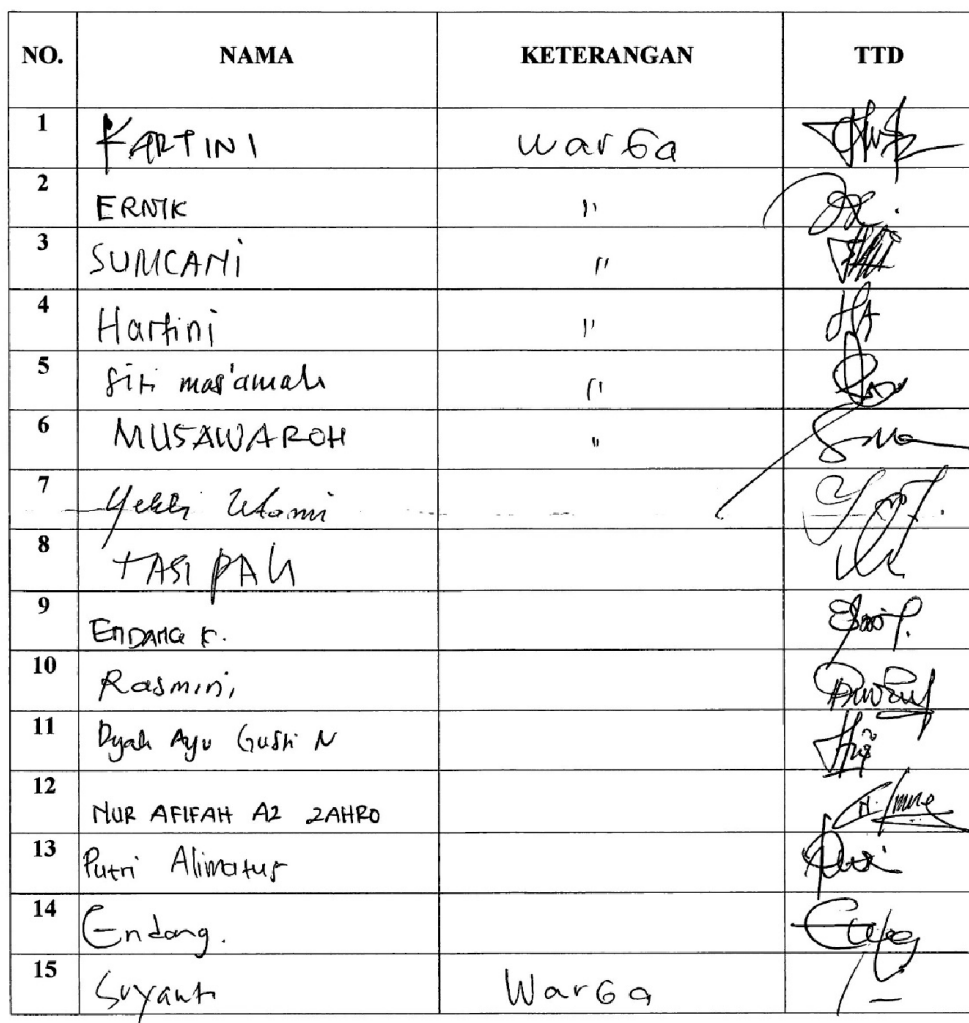 NO. NAMA KETERANGAN TTD
1 KARTINI warGa
2 ERNIK "
3 SUMCANi "
4 Hartini "
5 Siti mas'amah "
6 MUSAWAROH "
7 Yekti Utami
8 TASIPAH
9 ENDANG K.
10 Rasmini
11 Dyah Ayu Gusti N
12 NUR AFIFAH AZ ZAHRO
13 Putri Alimatus
14 Endang.
15 Suyanti WarGa